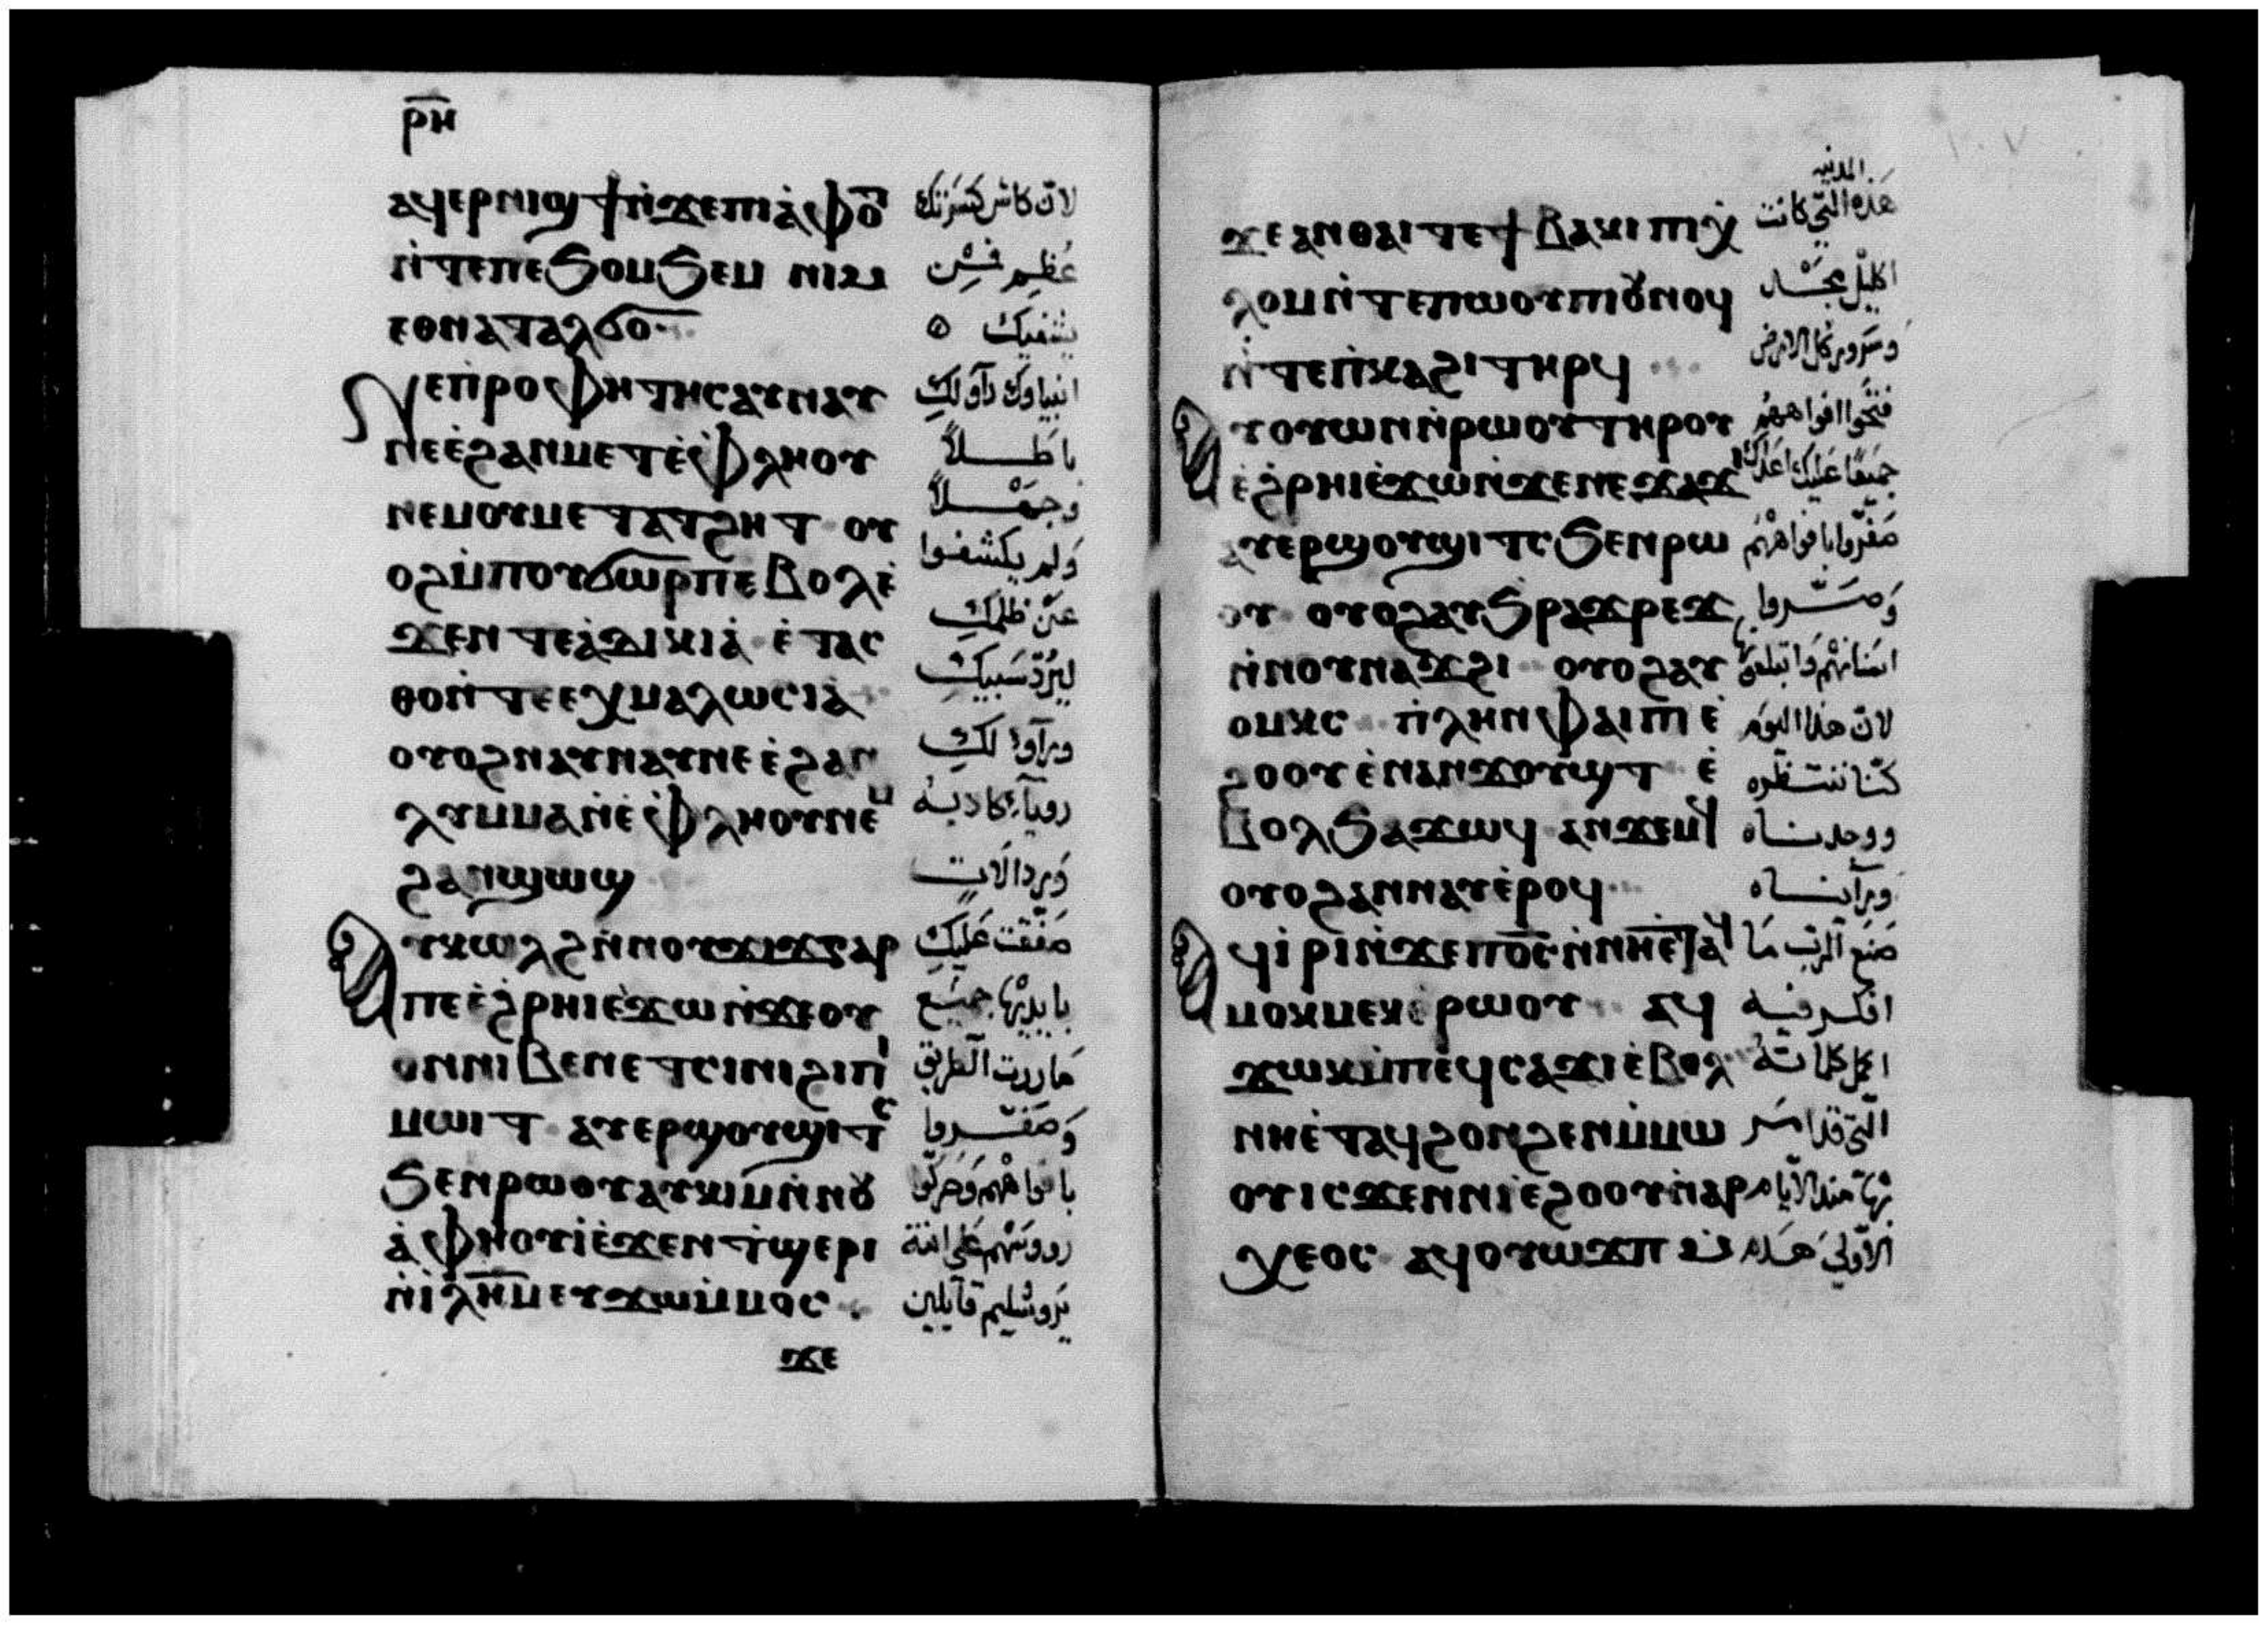 ⲣⲏ
ⲁϥⲉⲣⲛⲓϣϯⲛ̀ϫⲉⲡⲓⲁ̀ⲫⲟ
ⲛ̀ⲧⲉⲡⲉϧⲟⲙϧⲉⲙ ⲛⲓⲙ
ⲉⲑⲛⲁⲧⲁⲗϭⲟ
ⲛⲉⲡⲣⲟⲫⲏⲧⲏⲥⲁⲩⲛⲁⲩ
ⲛⲉⲉ̀ϩⲁⲛⲙⲉⲧⲉ̀ⲫⲗⲏⲟⲩ
ⲛⲉⲙⲟⲩⲙⲉⲧⲁⲧϩⲏⲧ ⲟⲩ
ⲟϩⲙ̀ⲡⲟⲩϭⲱⲣⲡⲉⲃⲟⲗⲉ̀
ϫⲉⲛ ⲧⲉⲁ̀ⲇⲓⲕⲓⲁ̀ ⲉ̀ⲧⲁⲥ
ⲑⲟⲛ̀ⲧⲉⲉⲭⲙⲁⲗⲱⲥⲓⲁ̀
ⲟⲩⲟϩⲛⲁⲩⲛⲁⲩⲛⲉⲉ̀ϩⲁⲛ
ⲗⲩⲙⲙⲁⲛ̀ⲉ̀ⲫⲗⲏⲟⲩⲛⲉⲙ
ϩⲁⲛϣⲱϣ
ⲁⲩⲕⲱⲗϩⲛ̀ⲛⲟⲩϫⲓϫⲅⲁⲣ
ⲡⲉⲉ̀ϩⲣⲏⲓⲉ̀ϫⲱⲛ̀ϫⲉⲟⲩ
ⲟⲛⲛⲓⲃⲉⲛⲉⲧⲥⲓⲛⲓϩⲓⲡⲓ
ⲙⲱⲓⲧ ⲁⲩⲉⲣϣⲟⲩϣⲓⲧⲥ
ϧⲉⲛⲣⲱⲟⲩⲁⲩⲕⲓⲙⲛ̀ⲛⲟⲩ
ⲁ̀ⲫⲏⲟⲩⲓⲉ̀ϫⲉⲛⲧϣⲉⲣⲓ
ⲛ̀ⲓⲗⲏⲙⲉⲩϫⲱⲙ̀ⲙⲟⲥ
ϫⲉ
لان كاس كسرتك
عظيم فمن
يشفيك ه
انبياوك رآو لك
باطلاً
وجهلاً
ولم يكشفوا
عن ظلمك
ليرد سبيك
ورآوا لك
رويا كادبه
ومردالات
صفقت عليك
بايديها جميع
ماررت الطريق
وصفروا
بافواههم وحركوا
رووسهم علي ابنة
يروشليم قايلين
ϫⲉⲁⲛⲑⲁⲓⲧⲉϯⲃⲁⲕⲓⲡⲓⲭ
ⲗⲟⲙⲛ̀ⲧⲉⲡⲱⲟⲩⲡⲓⲟⲩⲛⲟϥ
ⲛ̀ⲧⲉⲡ̀ⲕⲁϩⲓⲧⲏⲣϥ
ⲁⲩⲟⲩⲱⲛⲛ̀ⲣⲱⲟⲩⲧⲏⲣⲟⲩ
ⲉ̀ϩⲣⲏⲓⲉ̀ϫⲱⲛ̀ϫⲉⲛⲉϫⲁϫⲓ
ⲁⲩⲉⲣϣⲟⲩϣⲓⲧⲥϧⲉⲛⲣⲱ
ⲟⲩ ⲟⲩⲟϩⲁⲩϧⲣⲁϫⲣⲉϫ
ⲛ̀ⲛⲟⲩⲛⲁϫϩⲓ ⲟⲩⲟϩⲁⲩ
ⲟⲙⲕⲥ ⲡ̀ⲗⲏⲛⲫⲁⲓⲡⲉ
ϩⲟⲟⲩⲉ̀ⲛⲁⲛϫⲟⲩϣⲧ ⲉ̀
ⲃⲟⲗϧⲁϫⲱϥ ⲁⲛϫⲉⲙϥ
ⲟⲩⲟϩⲁⲛⲛⲁⲩⲉ̀ⲣⲟϥ
ⲁϥⲓ̀ⲣⲓⲛ̀ϫⲉⲡⲟⲥⲛ̀ⲛⲏⲉⲧⲁϥ
ⲙⲟⲕⲙⲉⲕⲉ̀ⲣⲱⲟⲩ ⲁϥ
ϫⲱⲕⲙ̀ⲡⲉϥⲥⲁϫⲓⲉ̀ⲃⲟⲗ
ⲛⲏⲉ̀ⲧⲁϥϩⲟⲛϩⲉⲛⲙ̀ⲙⲱ
ⲟⲩⲓⲥϫⲉⲛⲛⲓⲉ̀ϩⲟⲟⲩⲛ̀ⲁⲣ
ⲭⲉⲟⲥ ⲁϥⲟⲩⲱϫⲡ
المدينه
هذه التي كانت
اكليل مجد
وسرور كل الارض
فتحوا افواههم
جميعا عليك اعداك
صفروا بافواههم
وصروا
اسنانهم وابتلعوها
لان هذا اليوم
كنا ننتظره
ووجدناه
ورآيناه
صنع الرب ما
افكر فيه
اكمل كلماته
التي قد امر
بها منذ الايام
الاولي هدم